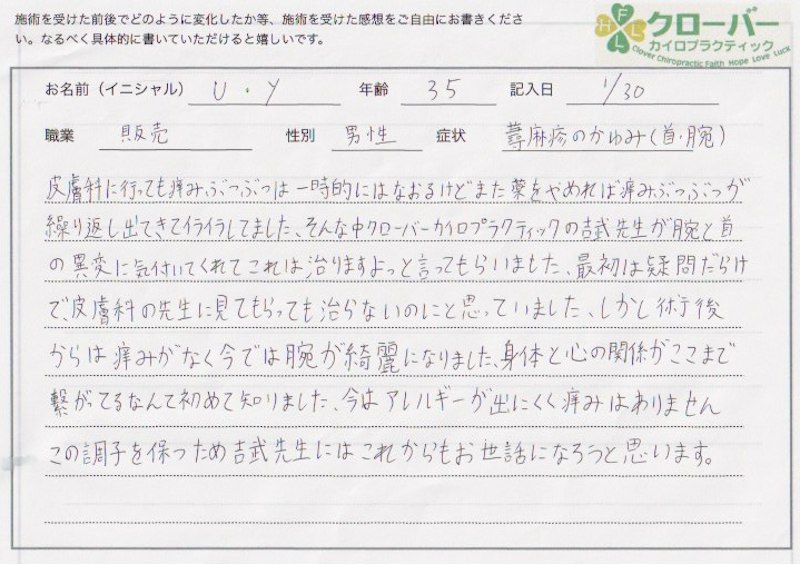 施術を受けた前後でどのように変化したか等、施術を受けた感想をご自由にお書きくださ
い。なるべく具体的に書いていただけると嬉しいです。
HFLL
クローバー
カイロプラクティック
Clover Chiropractic Faith Hope Love Luck
お名前（イニシャル） U・Y 年齢 35 記入日 1/30
職業 販売 性別 男性 症状 蕁麻疹のかゆみ(首・腕)
皮膚科に行っても痒みぶつぶつは一時的にはなおるけどまた薬をやめれば痒みぶつぶつが
繰り返し出てきてイライラしてました、そんな中クローバーカイロプラクティックの吉武先生が腕と首
の異変に気付いてくれてこれは治りますよっと言ってもらいました、最初は疑問だらけ
で、皮膚科の先生に見てもらっても治らないのにと思っていました、しかし術後
からは痒みがなく今では腕が綺麗になりました、身体と心の関係がここまで
繋がってるなんて初めて知りました、今はアレルギーが出にくく痒みはありません
この調子を保つため吉武先生にはこれからもお世話になろうと思います。